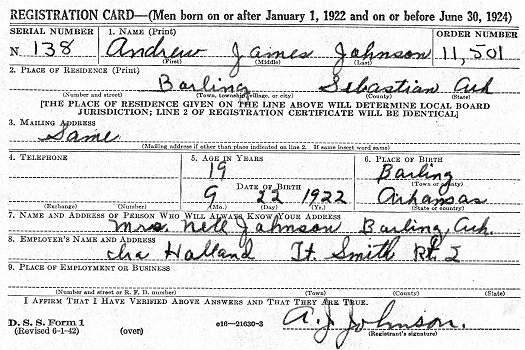 REGISTRATION CARD—(Men born on or after January 1, 1922 and on or before June 30, 1924)
SERIAL NUMBER 1. NAME (Print) ORDER NUMBER
N 138 Andrew James Johnson 11,501
(First) (Middle) (Last)
2. PLACE OF RESIDENCE (Print)
Barling Sebastian Ark
(Number and street) (Town, township, village, or city) (County) (State)
[THE PLACE OF RESIDENCE GIVEN ON THE LINE ABOVE WILL DETERMINE LOCAL BOARD
JURISDICTION; LINE 2 OF REGISTRATION CERTIFICATE WILL BE IDENTICAL]
3. MAILING ADDRESS
Same
(Mailing address if other than place indicated on line 2. If same insert word same)
4. TELEPHONE 5. AGE IN YEARS 6. PLACE OF BIRTH
19 Barling
DATE OF BIRTH (Town or county)
9 22 1922 Arkansas
(Exchange) (Number) (Mo.) (Day) (Yr.) (State or country)
7. NAME AND ADDRESS OF PERSON WHO WILL ALWAYS KNOW YOUR ADDRESS
Mrs. Nell Johnson Barling, Ark.
8. EMPLOYER'S NAME AND ADDRESS
Ira Holland Ft. Smith Rt. 2
9. PLACE OF EMPLOYMENT OR BUSINESS
(Number and street or R. F. D. number) (Town) (County) (State)
I AFFIRM THAT I HAVE VERIFIED ABOVE ANSWERS AND THAT THEY ARE TRUE.
D. S. S. Form 1 e16—21630-3 A. J. Johnson.
(Revised 6-1-42) (over) (Registrant's signature)